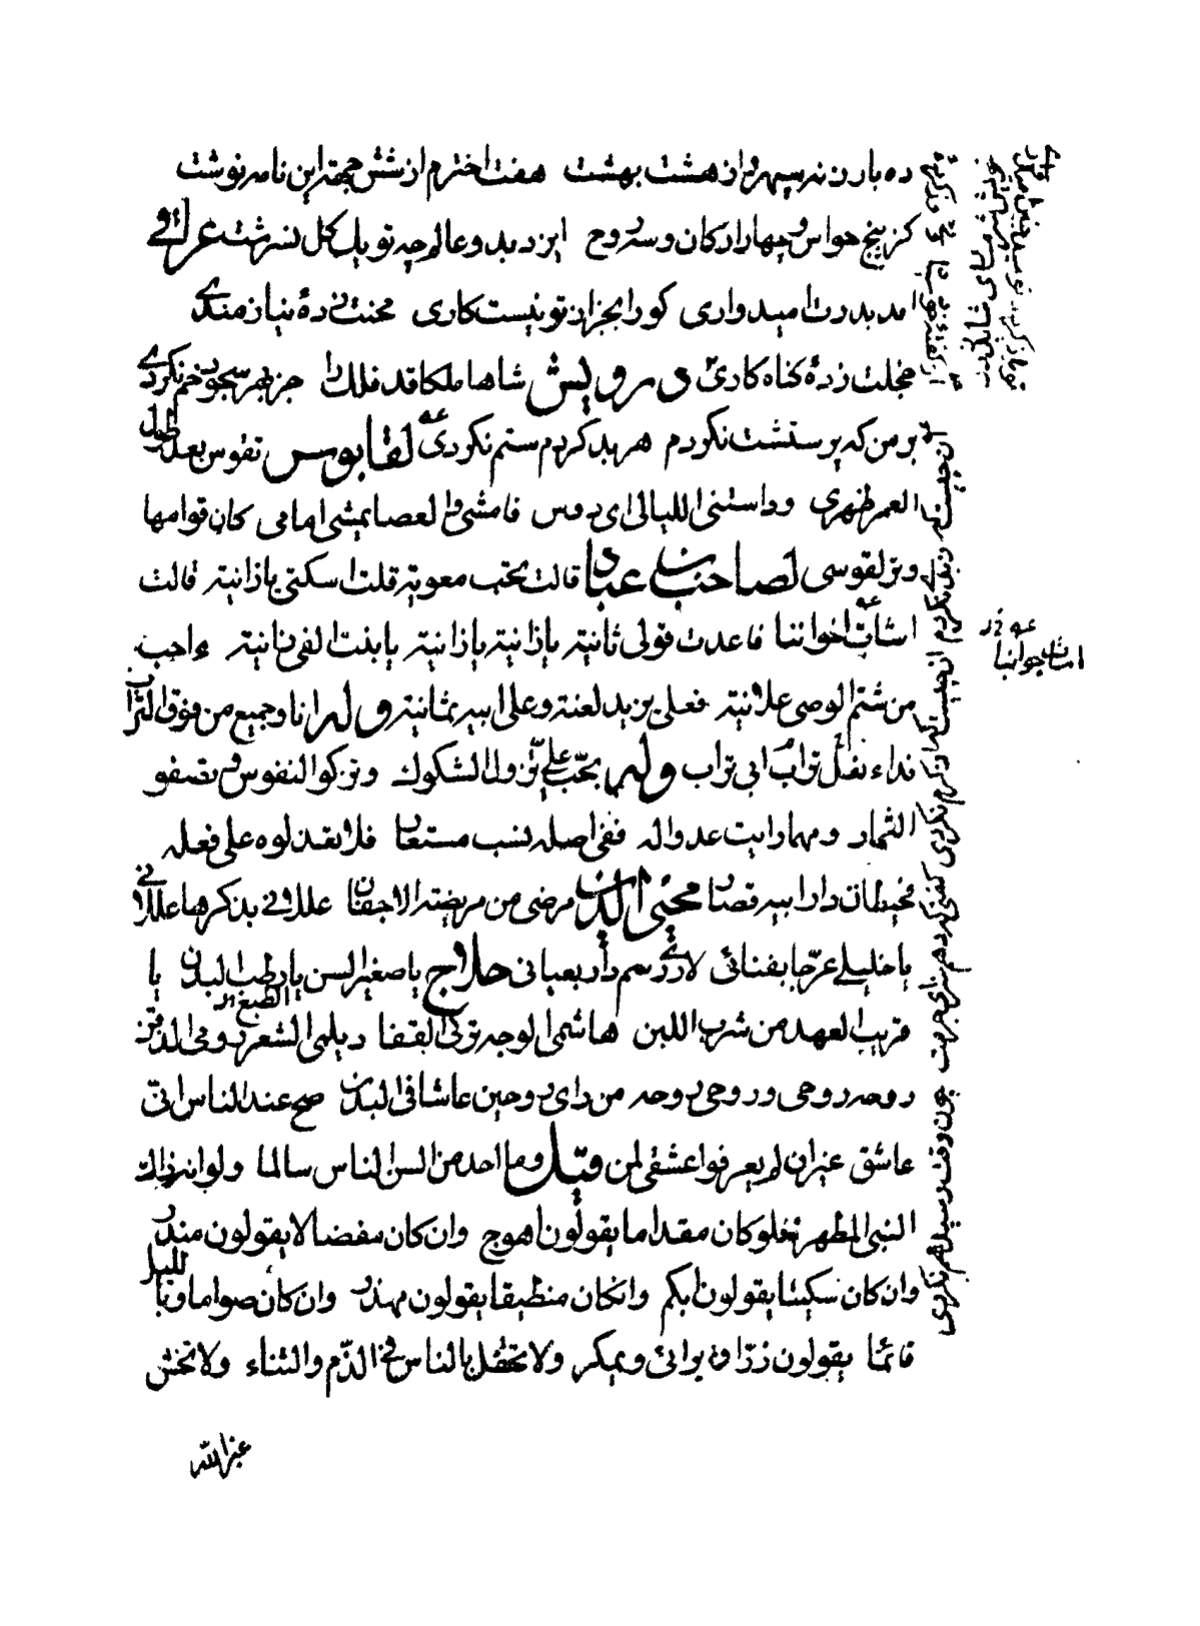 ده بار ز نه سپهر و از هشت بهشت هفت اخترم از شش جهة این نامه نوشت
کز پنج حواس و چهار ارکان و سه روح ایزد بدو عالم چه تو یک گل نسرشت عراقی
آمد بدرت امیدواری کو را بجز از تو نیست کاری محنت زدهٔ نیازمندی
خجلت زدهٔ گناه کاری درویش شاها ملکا قد فلک را جز بهر سجود خم نکردی
بر من که پرستشت نکردم هر بد کردم ستم نکردی لقابوس تقوس بعد طول
العمر ظهری وداستنی اللیالی ای دوس فامشی والعصا یمشی امامی کان قوامها
وتر لقوسی لصاحب بن عباد قالت تحب معویة قلت اسکتی یا زانیه قالت
اشأت اخواننا فاعدت قولی ثانیه یا زانیة یا زانیة یا بنت الفی زانیه ءاحب
من شتم الوصی علانیه فعلی یزید لعنة وعلی ابیه ثمانیه وله انا وجمیع من فوق التراب
فداء نعل تراب ابی تراب وله بحب علی تزول الشکوک وتزکو النفوس و تصفو
الثمار ومهما رایت عدوا له ففی اصله نسب مستعار فلا تعذلوه علی فعله
فحیطان دار ابیه قصار محیی الدین مرضی من مریضة الاجفان عللانی بذکرها عللانی
یا خلیلی عرّجا بفنائی لاری رسم دار بعیانی حلاج یا صغیر السن یا رطب البدن یا
قریب العهد من شرب اللبن هاشمی الوجه ترکی القفا دیلمی الشعر رومی الذقن
الصبغ ار
روحه روحی وروحی روحه من رای روحین عاشا فی البدن صح عند الناس انی
عاشق غیر ان لم یعرفوا عشقی لمن قیل وما احد من السن الناس سالما ولو انه ذاک
النبی المطهر فلو کان مقداما یقولون اهوج وان کان مفضالا یقولون مبذر
وان کان سکیتا یقولون ابکم وان کان منطیقا یقولون مهذر وان کان صواما وبا اللیل
قائما یقولون زرّاق یرائی ویمکر ولا تحفل بالناس فی الذّم والثناء ولا تخش
غیر الله
آن چیست که کردم آن چیست که از کرم نکردی گفتی که دهم سزای جرمت چون وقت رسید هم نکردی